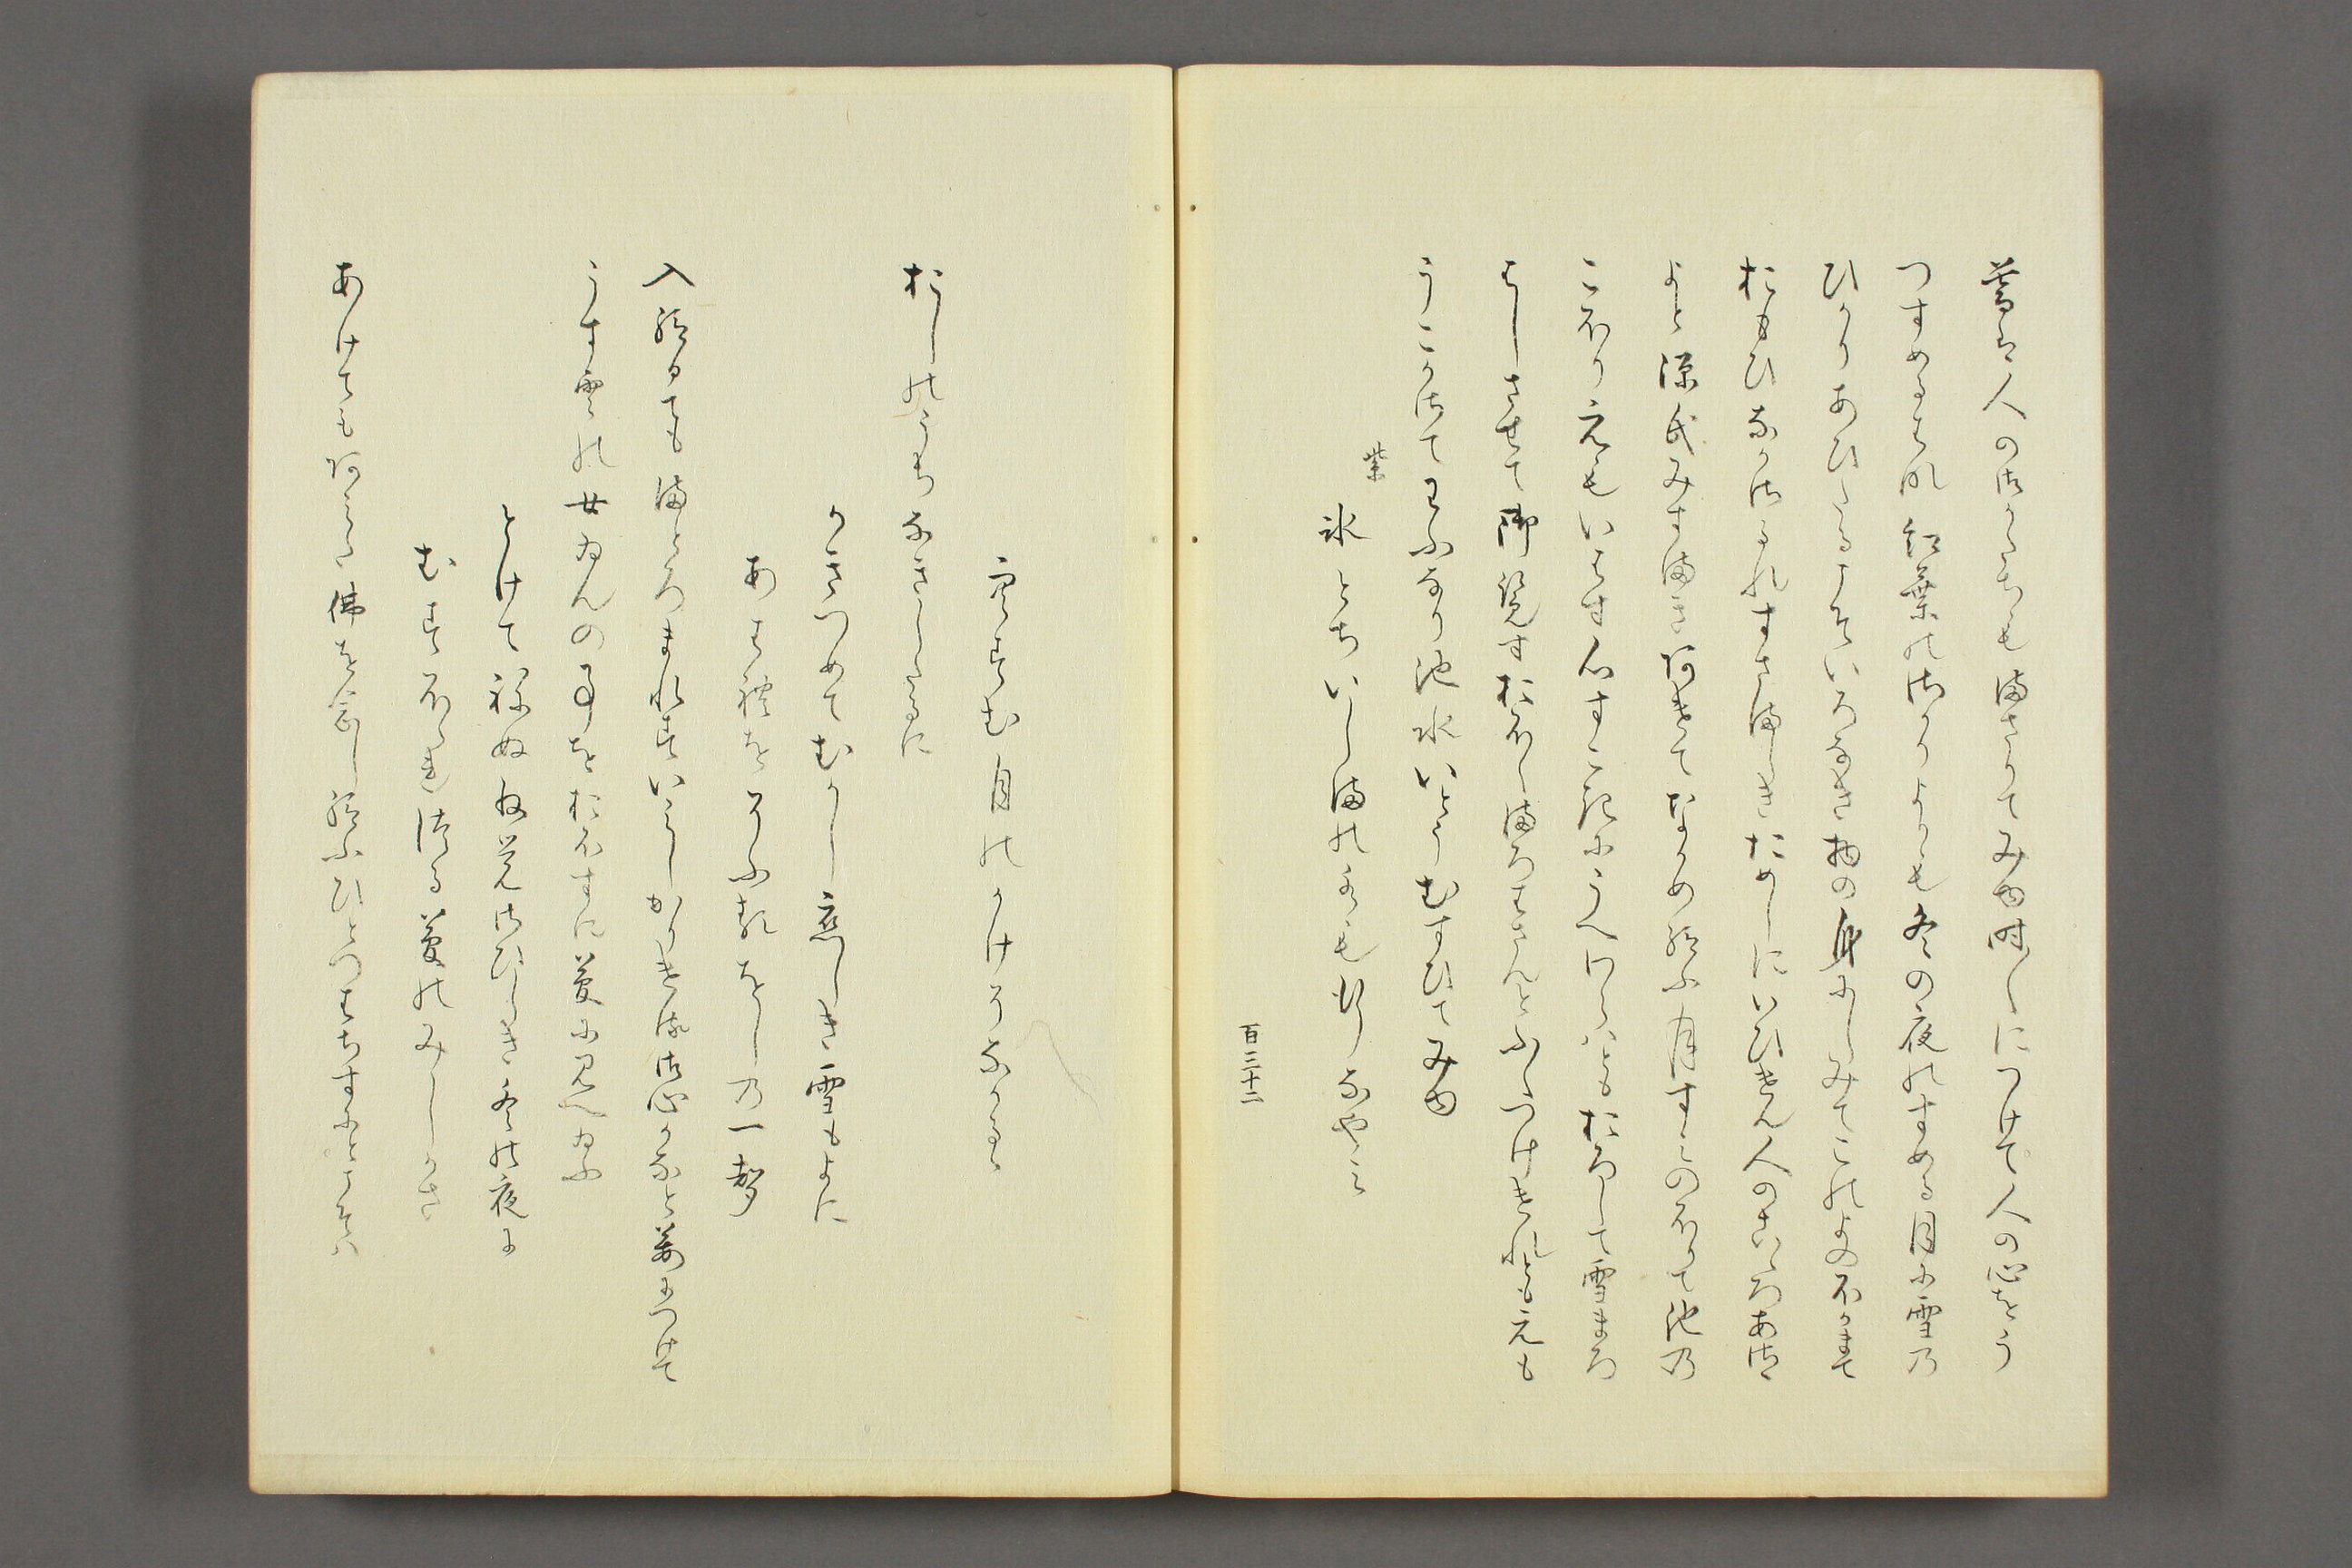 暮は人の御かたちもまさりてみゆ時〻につけて人の心をう
つすめる花紅葉のさかりよりも冬の夜のすめる月に雪の
ひかりあひたるこそいろなき物の身にしみてこのよの外まて
おもひなかされすさましきためしにいひけん人のこゝろあさ
よと源氏みすまきあけてなかめ給ふ月すみのほりて池の
こほりえもいはすすこきにうへわらはともおろして雪まろ
はしさせて御覧すおほくまろはさんとふくつけけれともえも
うこかさてわふなり池水いとうむすひてみゆ
紫
氷とちいしまの水も行なやみ
百三十二
空すむ月のかけそなかるゝ
おしのうちなきしたるに
かきつめてむかし恋しき雪もよに
あはれをそふるをしの一聲
入給ひてもまとろまれすいみしかりける御心かなと萬につけて
うす雲の女ゐんの事をおほすに夢に見へ給ふ
とけてねぬね覚さひしき冬の夜に
むすほゝれつる夢のみしかさ
あけてもあみた佛を念し給ふひとつはちすにとこそは